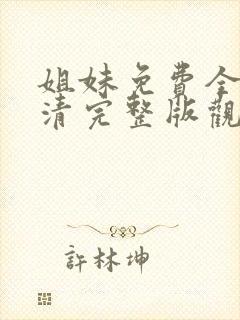 姐妹免費全
清完整版觀
許林坤